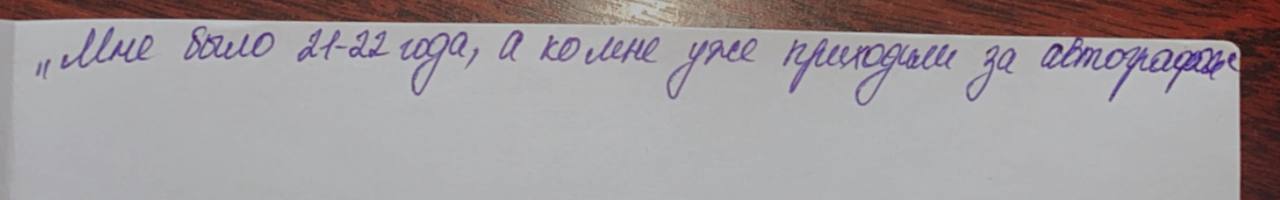 „Мне было 21-22 года, а ко мне уже приходили за автографом